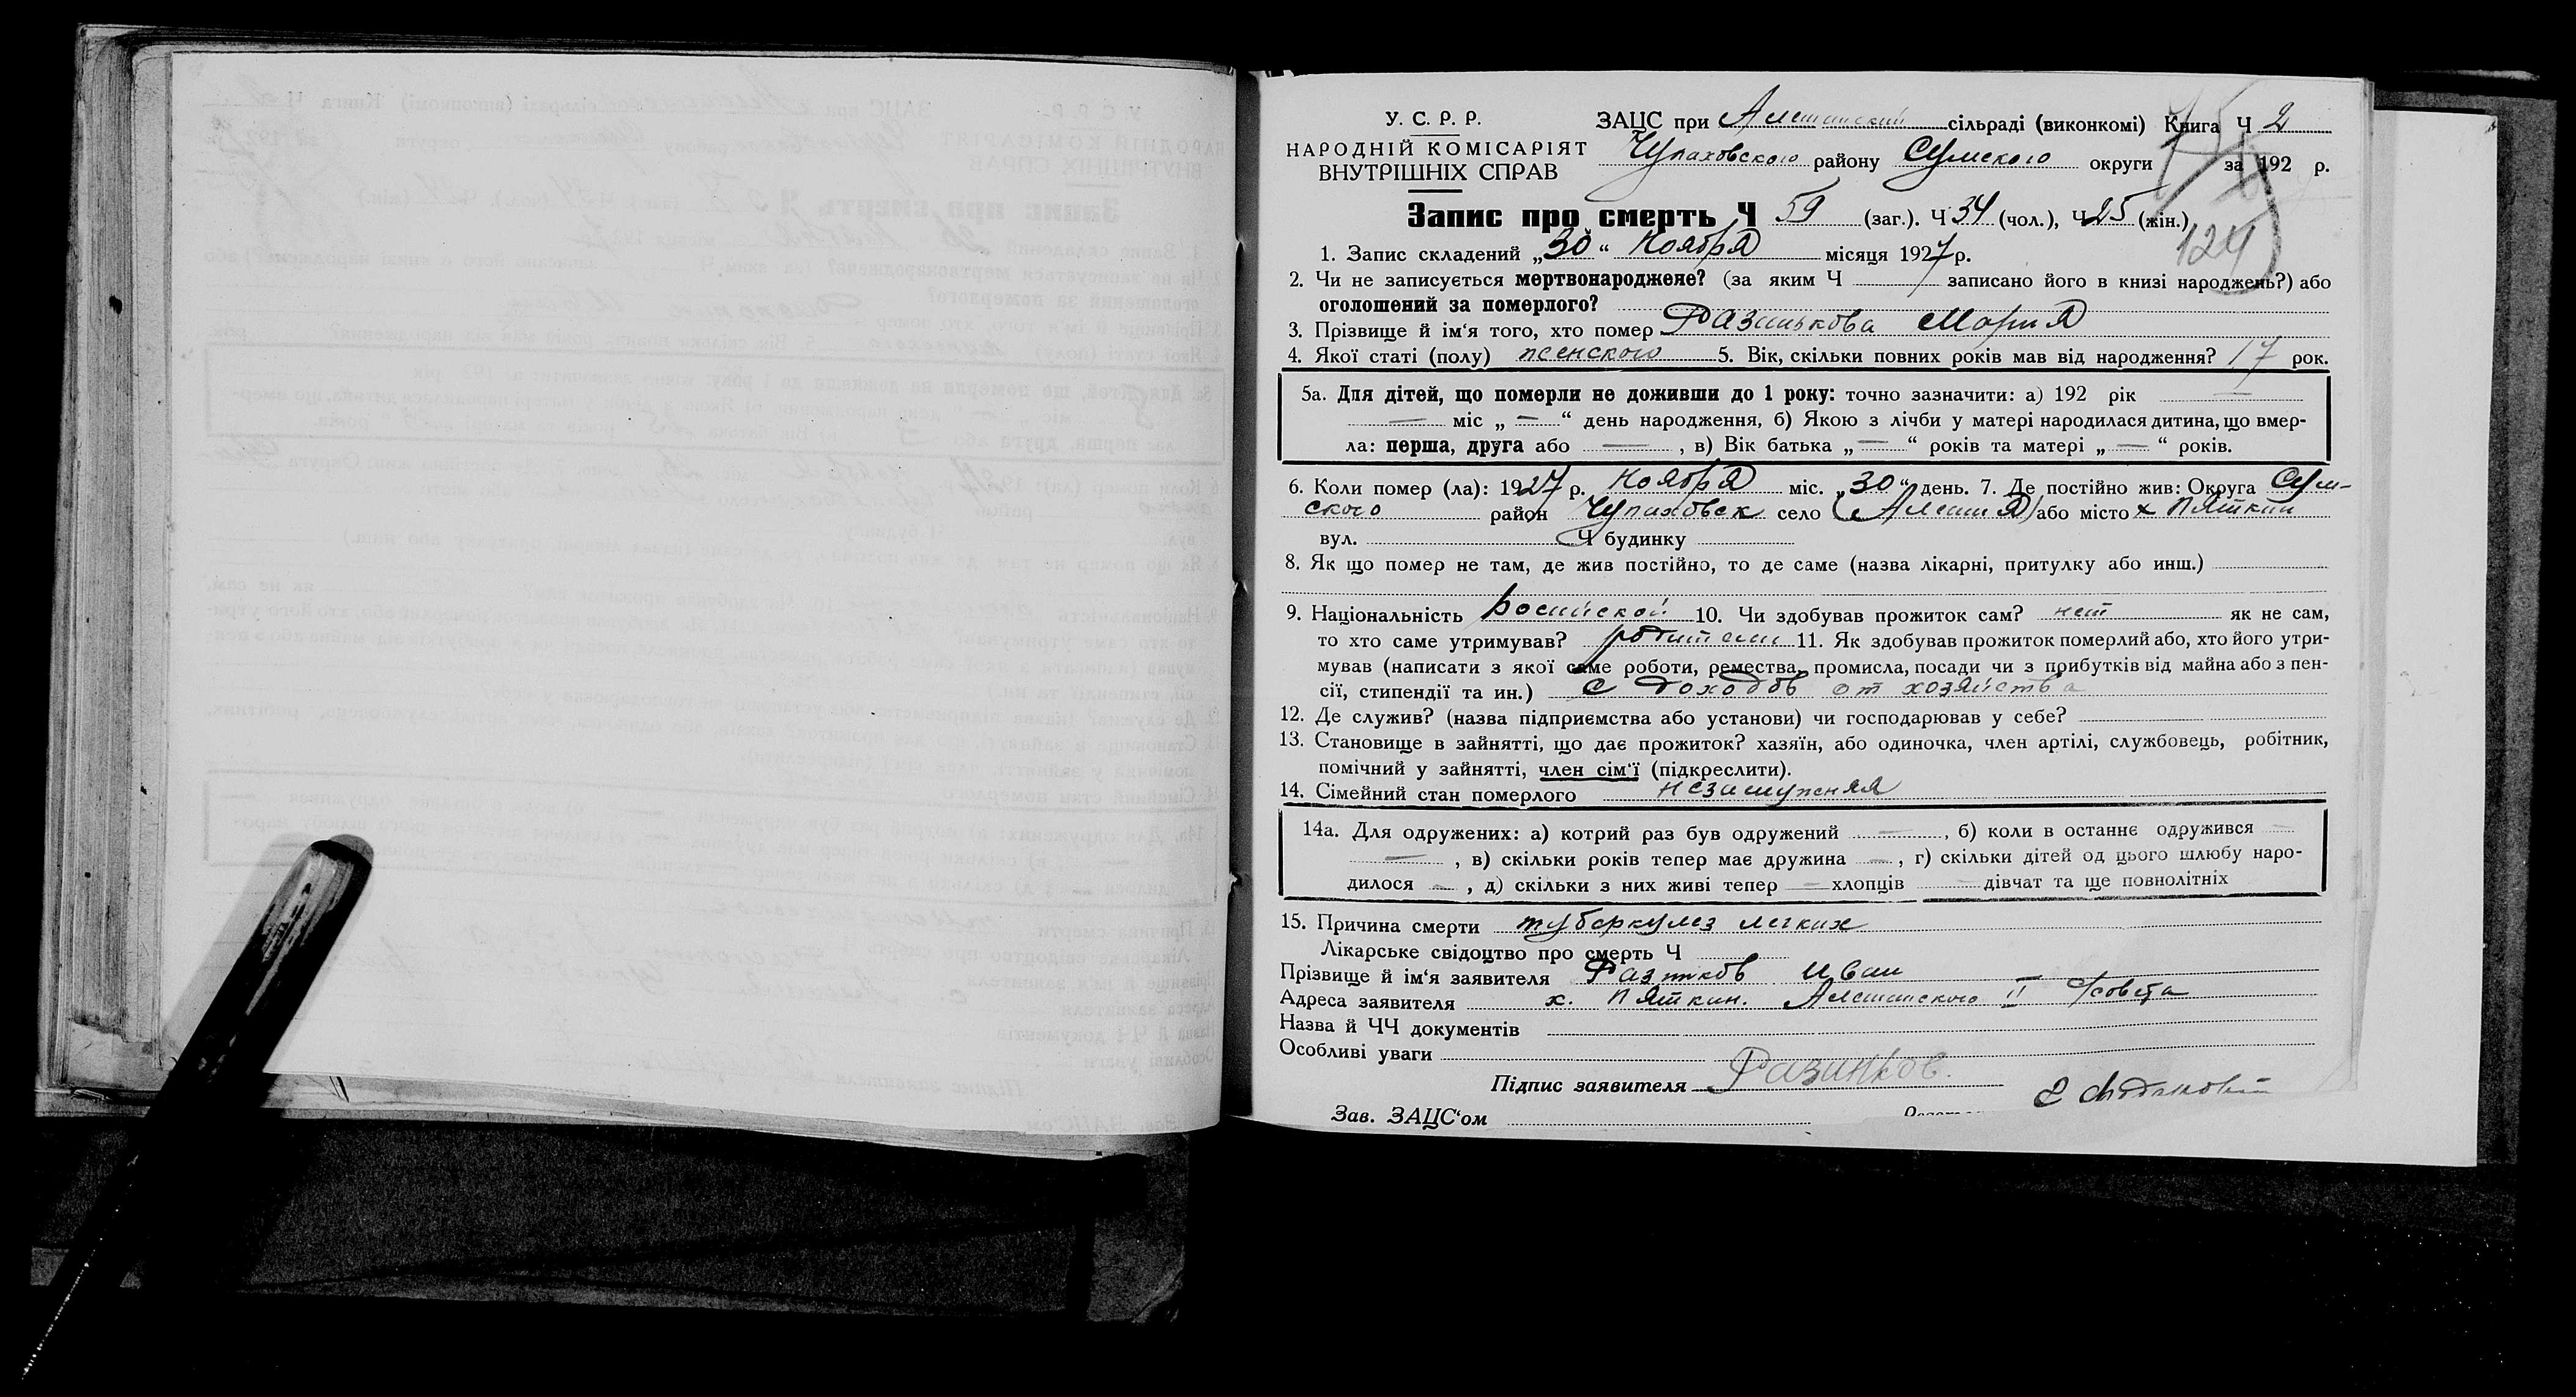 У. С. Р. Р.
НАРОДНІЙ КОМІСАРІЯТ
ВНУТРІШНІХ СПРАВ
ЗАЦС при Алешанский сільраді (виконкомі) Книга Ч 2
Чупаховского району Сумского округи за 192 р.
124
Запис про смерть Ч 59 (заг.). Ч 34 (чол.), Ч 25 (жін.)
1. Запис складений „30“ Ноября місяця 1927 р.
2. Чи не записується мертвонароджене? (за яким Ч записано його в книзі народжень?) або
оголошений за померлого?
3. Прізвище й ім‘я того, хто помер Разинькова Мария
4. Якої статі (полу) женского 5. Вік, скільки повних років мав від народження? 17 рок.
5а. Для дітей, що померли не доживши до 1 року: точно зазначити: а) 192 рік —
— міс „ — “ день народження, б) Якою з лічби у матері народилася дитина, що вмер-
ла: перша, друга або — , в) Вік батька „ — “ років та матері „ — “ років.
6. Коли помер (ла): 1927 р. Ноября міс. „30“ день. 7. Де постійно жив: Округа Сум-
ского район Чупаховск село (Алешня) або місто х Пяткин
вул. Ч будинку
8. Як що помер не там, де жив постійно, то де саме (назва лікарні, притулку або инш.)
9. Національність Российской 10. Чи здобував прожиток сам? нет як не сам,
то хто саме утримував? родители 11. Як здобував прожиток померлий або, хто його утри-
мував (написати з якої саме роботи, ремества, промисла, посади чи з прибутків від майна або з пен-
сії, стипендії та ин.) С доходов от хозяйства
12. Де служив? (назва підприємства або установи) чи господарював у себе?
13. Становище в зайнятті, що дає прожиток? хазяїн, або одиночка, член артілі, службовець, робітник,
помічний у зайнятті, член сім‘ї (підкреслити).
14. Сімейний стан померлого незамужняя
14а. Для одружених: а) котрий раз був одружений — , б) коли в останнє одружився —
— , в) скільки років тепер має дружина — , г) скільки дітей од цього шлюбу наро-
дилося — , д) скільки з них живі тепер — хлопців — дівчат та ще повнолітніх
15. Причина смерти туберкулез легких
Лікарське свідоцтво про смерть Ч
Прізвище й ім‘я заявителя Разинков Иван
Адреса заявителя х. Пяткин. Алешанского II с/совета
Назва й ЧЧ документів
Особливі уваги
Підпис заявителя Разинков.
Зав. ЗАЦС‘ом